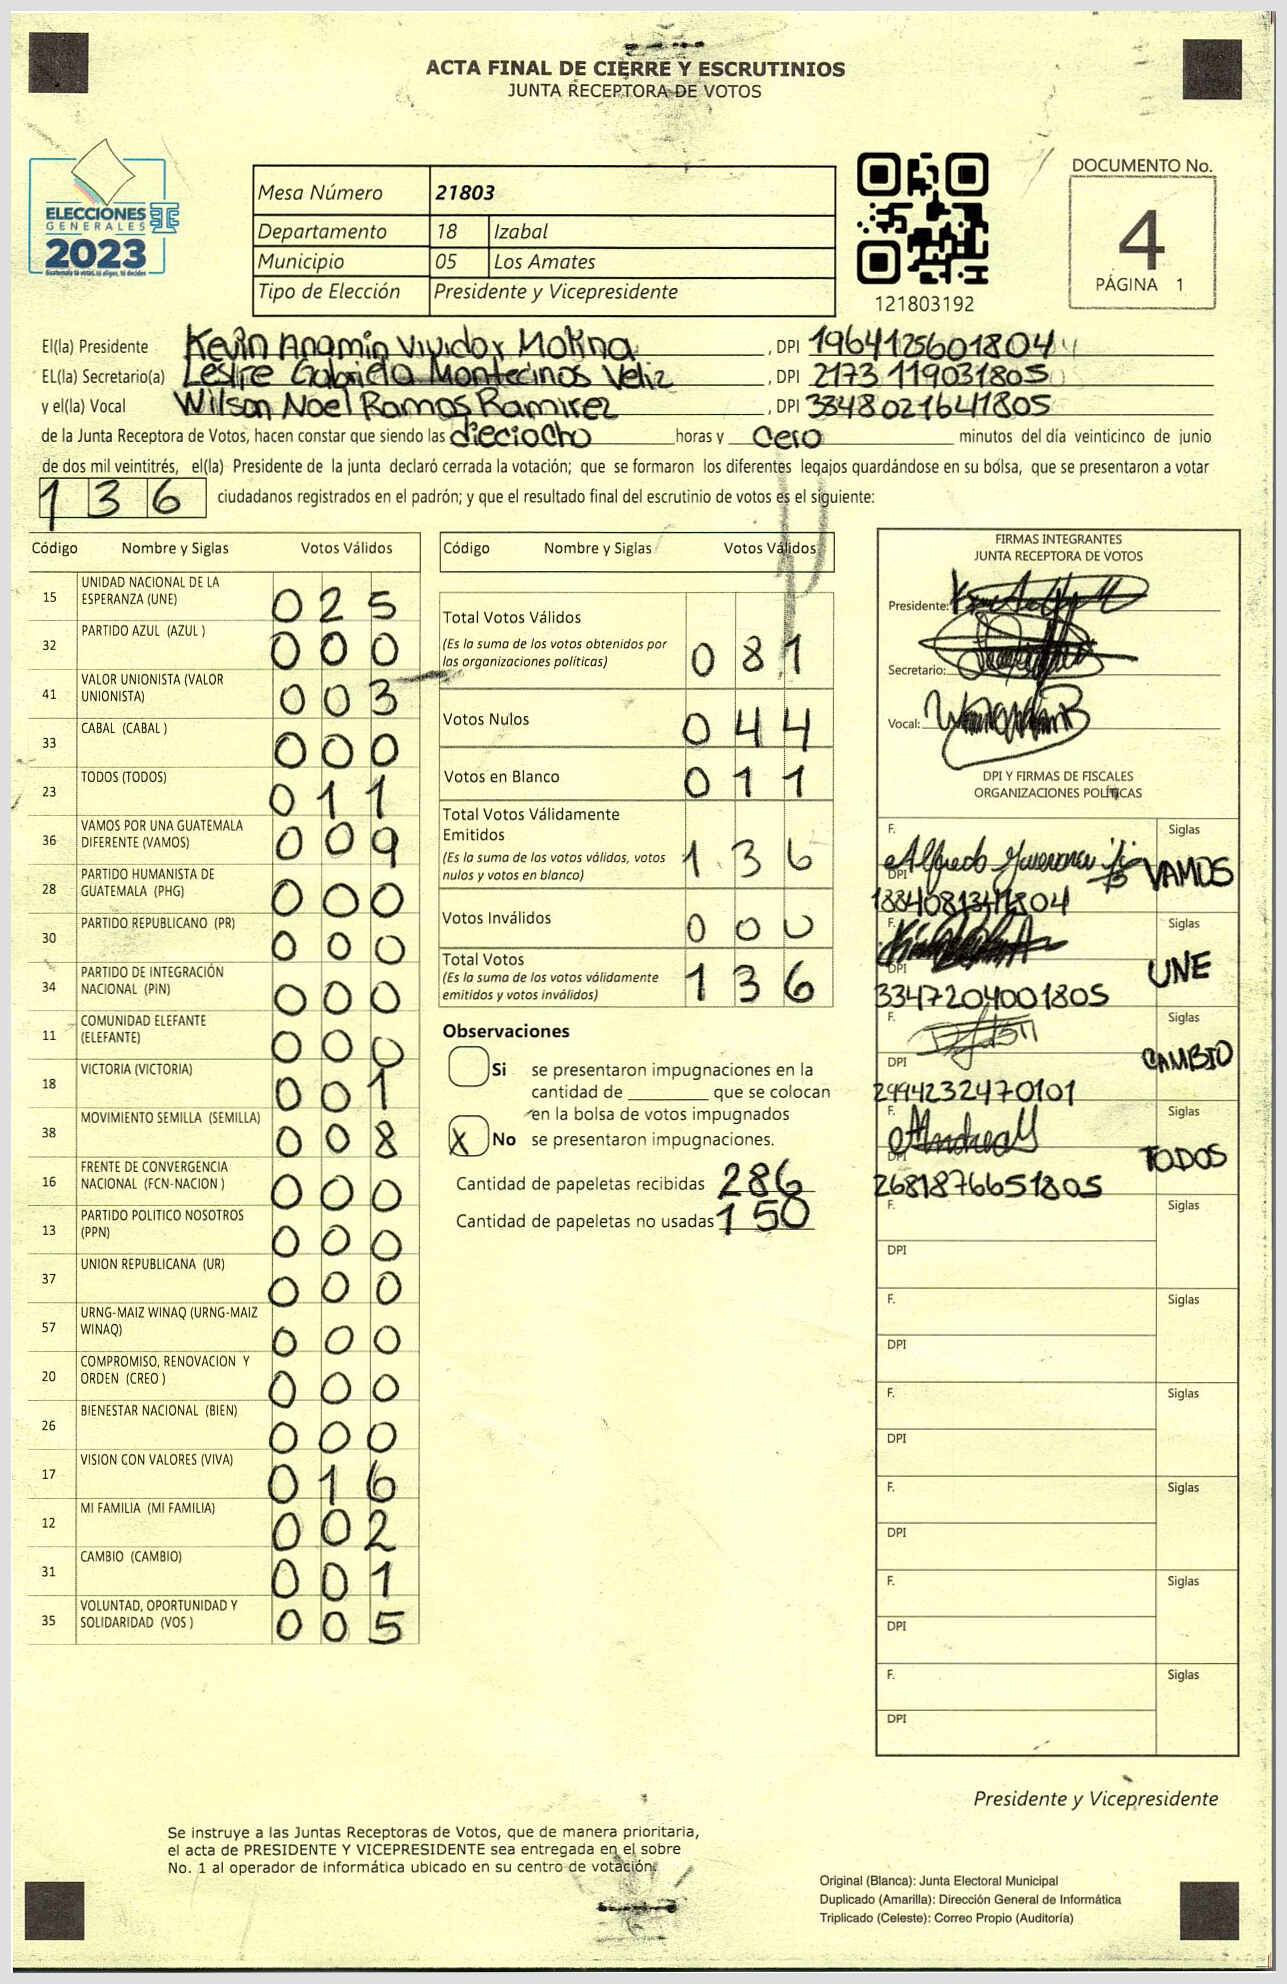 ACTA FINAL DE CIERRE Y ESCRUTINIOS
JUNTA RECEPTORA DE VOTOS
ELECCIONES
GENERALES
2023
Guatemala tú votas, tú eliges, tú decides
Mesa Número 21803
Departamento 18 Izabal
Municipio 05 Los Amates
Tipo de Elección Presidente y Vicepresidente
121803192
DOCUMENTO No.
4
PÁGINA 1
El(la) Presidente Kevin Anamin Vividor Molina, DPI 1964125601804
EL(la) Secretario(a) Leslre Gabriela Montecinos Veliz, DPI 2173 119031805
y el(la) Vocal Wilson Noel Ramos Ramirez, DPI 3348021641805
de la Junta Receptora de Votos, hacen constar que siendo las dieciocho horas y cero minutos del día veinticinco de junio
de dos mil veintitrés, el(la) Presidente de la junta declaró cerrada la votación; que se formaron los diferentes legajos quardándose en su bolsa, que se presentaron a votar
136 ciudadanos registrados en el padrón; y que el resultado final del escrutinio de votos es el siguiente:
Código Nombre y Siglas Votos Válidos
15 UNIDAD NACIONAL DE LA ESPERANZA (UNE) 025
32 PARTIDO AZUL (AZUL ) 000
41 VALOR UNIONISTA (VALOR UNIONISTA) 003
33 CABAL (CABAL ) 000
23 TODOS (TODOS) 011
36 VAMOS POR UNA GUATEMALA DIFERENTE (VAMOS) 009
28 PARTIDO HUMANISTA DE GUATEMALA (PHG) 000
30 PARTIDO REPUBLICANO (PR) 000
34 PARTIDO DE INTEGRACIÓN NACIONAL (PIN) 000
11 COMUNIDAD ELEFANTE (ELEFANTE) 000
18 VICTORIA (VICTORIA) 001
38 MOVIMIENTO SEMILLA (SEMILLA) 008
16 FRENTE DE CONVERGENCIA NACIONAL (FCN-NACION ) 000
13 PARTIDO POLITICO NOSOTROS (PPN) 000
37 UNION REPUBLICANA (UR) 000
57 URNG-MAIZ WINAQ (URNG-MAIZ WINAQ) 000
20 COMPROMISO, RENOVACION Y ORDEN (CREO ) 000
26 BIENESTAR NACIONAL (BIEN) 000
17 VISION CON VALORES (VIVA) 016
12 MI FAMILIA (MI FAMILIA) 002
31 CAMBIO (CAMBIO) 001
35 VOLUNTAD, OPORTUNIDAD Y SOLIDARIDAD (VOS ) 005
Código Nombre y Siglas Votos Válidos
Total Votos Válidos
(Es la suma de los votos obtenidos por
las organizaciones políticas) 081
Votos Nulos 044
Votos en Blanco 011
Total Votos Válidamente
Emitidos
(Es la suma de los votos válidos, votos
nulos y votos en blanco) 136
Votos Inválidos 000
Total Votos
(Es la suma de los votos válidamente
emitidos y votos inválidos) 136
Observaciones
Si se presentaron impugnaciones en la
cantidad de ________ que se colocan
en la bolsa de votos impugnados
X No se presentaron impugnaciones.
Cantidad de papeletas recibidas 286
Cantidad de papeletas no usadas 150
FIRMAS INTEGRANTES
JUNTA RECEPTORA DE VOTOS
Presidente:
Secretario:
Vocal:
DPI Y FIRMAS DE FISCALES
ORGANIZACIONES POLÍTICAS
F. Siglas
Alfredo VAMOS
DPI
F. Siglas
UNE
DPI 3347204001805
F. Siglas
CAMBIO
DPI 2994232470101
F. Siglas
Andrea TODOS
DPI 2681876651805
F. Siglas
DPI
F. Siglas
DPI
F. Siglas
DPI
F. Siglas
DPI
F. Siglas
DPI
F. Siglas
DPI
Presidente y Vicepresidente
Se instruye a las Juntas Receptoras de Votos, que de manera prioritaria,
el acta de PRESIDENTE Y VICEPRESIDENTE sea entregada en el sobre
No. 1 al operador de informática ubicado en su centro de votación.
Original (Blanca): Junta Electoral Municipal
Duplicado (Amarilla): Dirección General de Informática
Triplicado (Celeste): Correo Propio (Auditoría)